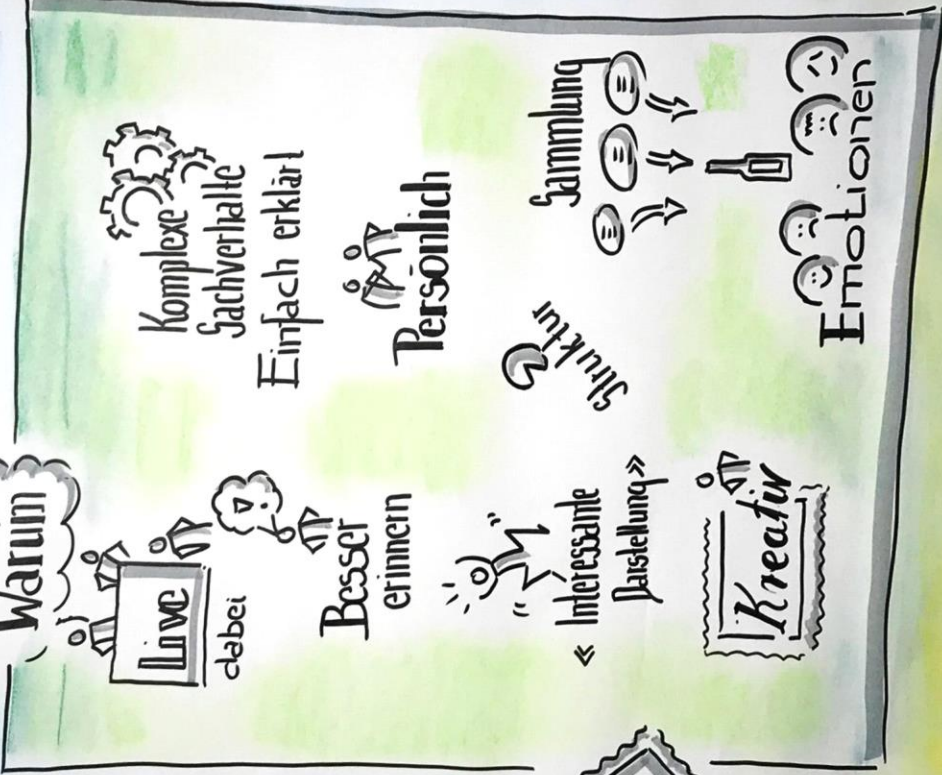 Warum
Live
dabei
Besser
erinnern
« Interessante
Darstellung»
Kreativ
Komplexe
Sachverhalte
Einfach erklärt
Persönlich
Struktur
Sammlung
Emotionen